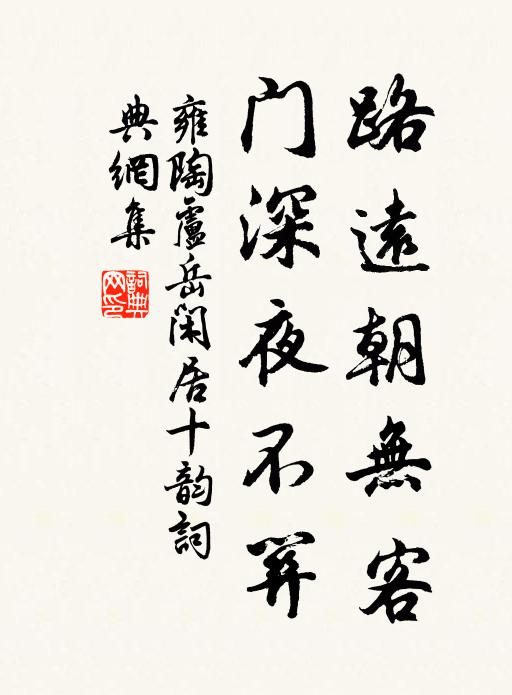 路遠朝無客
门深夜不關
雍陶盧岳闲居十韵詞
典網集
詞典
网印